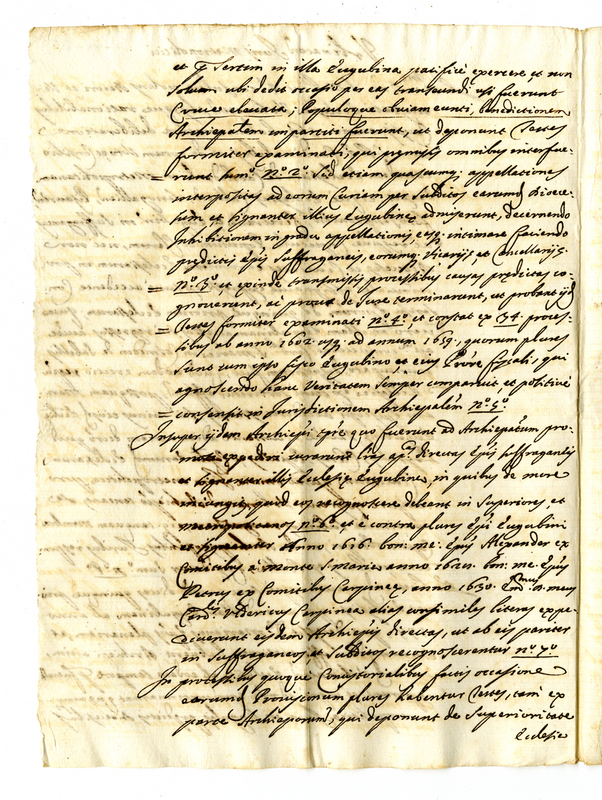 et sertem in illa Eugubina pacificè exercere et non
solum ubi dedit occasio per eas transeundi usi fuerunt
Cruce elevata; Populoque obviam eunti, benedictionem
Archiepalem impartiti fuerunt, ut deponunt Testes
formiter examinati, qui premissis omnibus interfue-
= runt sum.º n.º 2.º Sed etiam quascumq; appellationes
interpositas ad eorum Curiam per Subditos earumd Dioece-
sium et signanter illius Eugubine admiserunt, decernendo
Inhibitionem in gradu appellationis, easq; intimare faciendo
predictis Epis Suffraganeis, eorumq; Vicarijs et Cancellarijs
= n.º 3.º et exinde transmissis processibus causas predictas co-
gnoverunt, ac prout de Jure terminarunt, et probant ijd
= Testes formiter examinati n.º 4.º, et constat ex 34. proces-
sibus ab anno 1602. usq; ad annum 1659. quorum plures
sunt cum ipso fisco Eugubino et eius Prore fiscali, qui
agnoscendo hanc Veritatem semper comparuit et positivè
= consensit in Jurisdictionem Archiepalem n.º 5.º
Insuper ijdem Archiepi tpre quo fuerunt ad Archiepatum pro-
moti expediri curarunt lras directas Epis suffraganeis
et signanter illis Ecclesie Eugubine, in quibus de more
iniungit, quod eos recognoscere debeant in Superiores et
Metropolitanos n.º 6.º et è contra plures Epi Eugubini
et signanter Anno 1616. bon: me: Epus Alexander ex
Comitibus à Monte S. Marie, anno 1621. bon: me: Epus
Petrus ex Comitibus Carpinee, anno 1630. Em.mus D. meus
Card.lis Uldericus Carpinea alias consimiles literas expe-
diverunt eisdem Archiepis directas, ut ab eis pariter
in Suffraganeos et Subditos recognoscerentur n.º 7.º
In processibus quoque Consistorialibus factis occasione
earumd Provisionum plures habentur Testes, tam ex
parte Archieporum, qui deponunt de Superioritate
Ecclesie